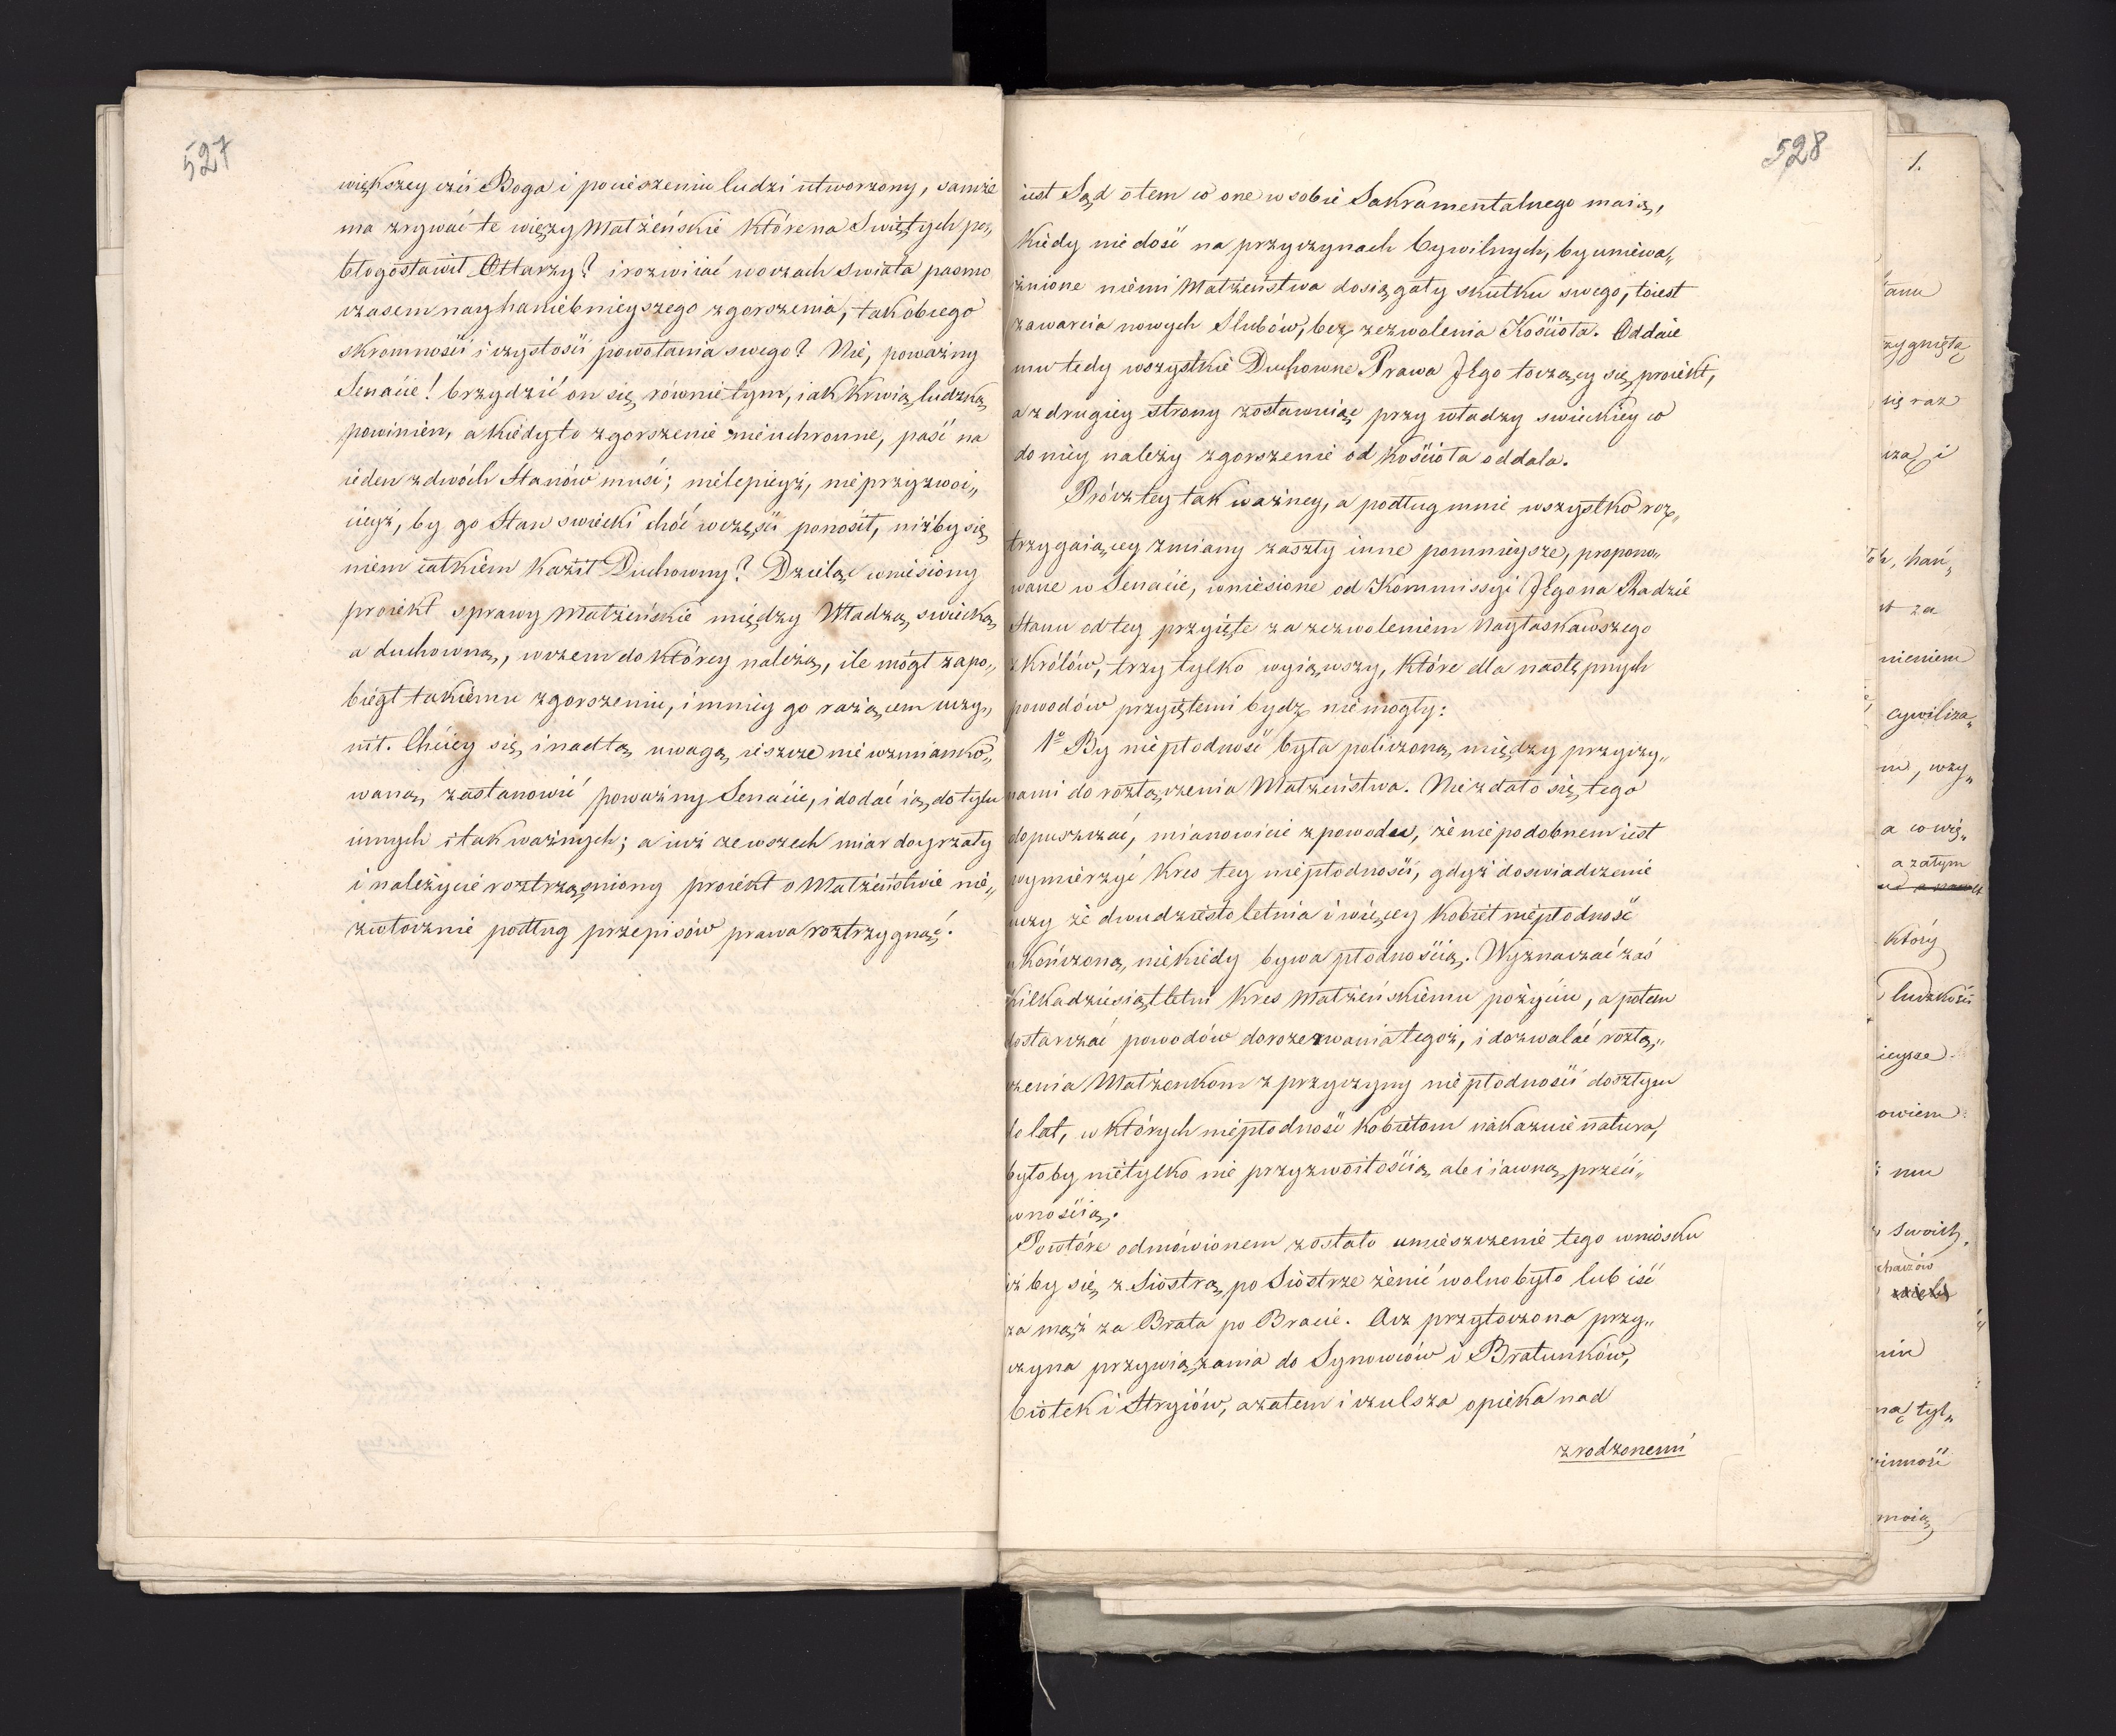 527
większey czci Boga i pocieszeniu ludzi utworzony, samże
ma zrywać te więzy Małżeńskie które na Swiętych po„
błogosławił Ołtarzy? i rozwiiać w oczach swiata pasmo
czasem nayhaniebnieyszego zgorszenia, tak obcego
skromności i czystości powołania swego? Nie, poważny
Senacie! brzydzić on się równie tym, iak krwią ludzką
powinien, a kiedy to zgorszenie nieuchronne, paść na
ieden z dwóch Stanów musi; nielepieyż, nieprzyzwoi„
cieyż, by go Stan swiecki choć w części ponosił, niżby się
niem całkiem kaził Duchowny? Dzieląc wniesiony
proiekt sprawy Małżeńskie między Władzą swiecką
a duchowną, w czem do którey należą, ile mógł zapo„
biegł takiemu zgorszeniu, i mniey go rażącem uczy„
nił. Chciey się i nad tą uwagą ieszcze nie wzmianko„
waną zastanowić poważny Senacie, i dodać ią do tylu
innych i tak ważnych; a iuż ze wszech miar doyrzały
i należycie roztrząśniony proiekt o Małżeństwie nie„
zwłocznie podług przepisów prawa roztrzygnąć.
528
iest Sąd o tem co one w sobie Sakramentalnego maią,
Kiedy nie dość na przyczynach Cywilnych, by uniewa„
żnione niemi Małżeństwa dosięgały skutku swego, to iest
zawarcia nowych Slubów, bez zezwolenia Kościoła. Oddaie
mu tedy wszystkie Duchowne Prawa Jego toczący się proiekt,
a z drugiey strony zostawuiąc przy władzy swieckiey co
do niey należy zgorszenie od Kościoła oddala.
Prócz tey tak ważney, a podług mnie wszystko roz„
trzygaiącey zmiany zaszły inne pomnieysze, propono„
wane w Senacie, wniesione od Kommissyi Jego na Radzie
Stanu od tey przyięte za zezwoleniem Nayłaskawszego
z Królów, trzy tylko wyiąwszy, które dla następnych
powodów przyiętemi bydz nie mogły:
1º By niepłodność była policzona między przyczy„
nami do rozłączenia Małżeństwa. Nie zdało się tego
dopuszczać, mianowicie z powodu, że niepodobnem iest
wymierzyć Kres tey niepłodności, gdyż doswiadczenie
uczy że dwudziesto letnia i więcey Kobiet niepłodność
ukończoną niekiedy bywa płodnością. Wyznaczać zaś
Kilkadziesiąt letni Kres Małżeńskiemu pożyciu, a potem
dostarczać powodów do rozerwania tegoż, i dozwalać rozłą„
czenia Małżonkom z przyczyny niepłodności doszłym
do lat, w których niepłodność Kobietom nakazuie natura,
byłoby nietylko nie przyzwoitością ale i iawną przeci„
wnością.
Powtóre odmówionem zostało umieszczenie tego wniosku
iżby się z Siostrą po Siostrze żenić wolno było lub iść
za mąż za Brata po Bracie. Acz przytoczona przy„
czyna przywiązania do Synowców i Bratunków,
Ciotek i Stryiów, a zatem i czulsza opieka nad
zrodzonemi
1.
zygnięta
się raz
za i
st za
nieniem
cywiliza„
m, wzy„
a co wię„
a zatym
który
ludzkości
ieysze
owiem
mu
swoich,
ną tyl„
inność
moią